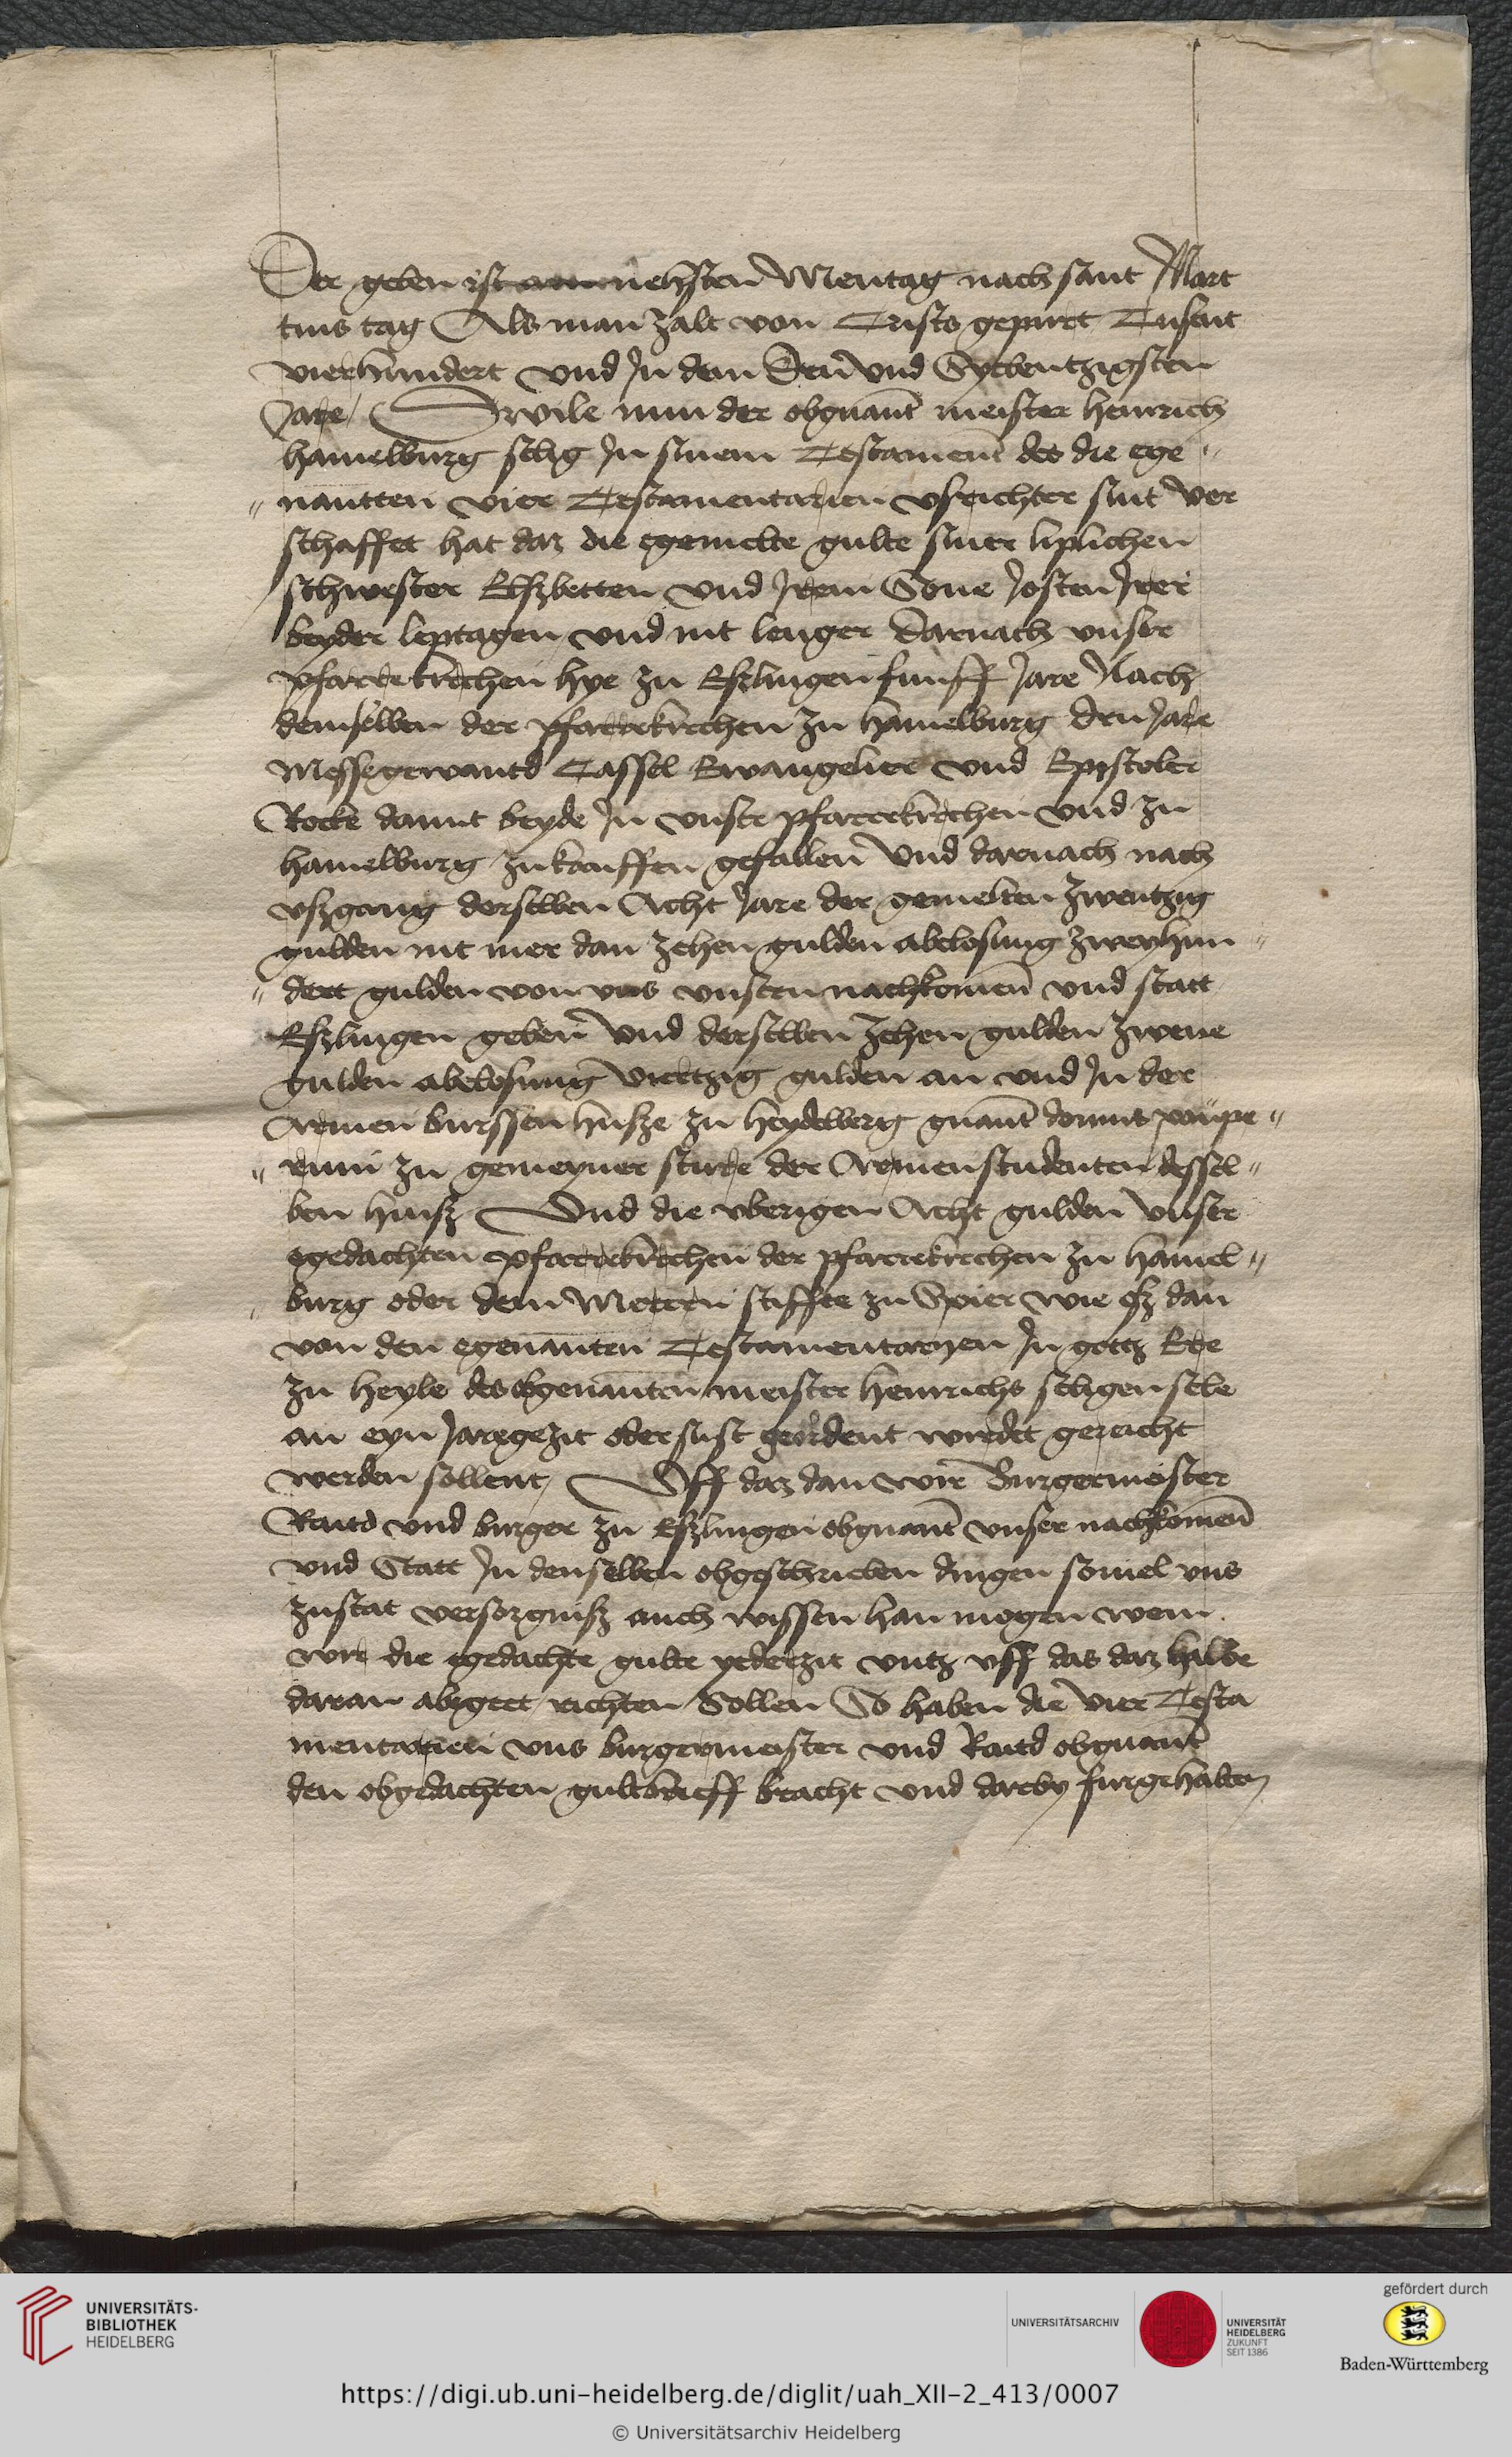 Der geben ist am nehsten Mentag nach sant Mart
tins tag Als man zalt von Cristo gepurt Tusent
vierhundert und In dem Sen und Sybentzigsten
Jare / Dwile nun der obgnant meister heinrich
hamelburg selig In sinem Testament des die ege "
" nantten vier Testamentarien vsrichter sint ver
schaffet hat daz die egemelte gulte siner liplichen
schwester Elszbetten und Irem Sone Josten Irer
beyder leptagen und nit lenger Darnach unser
pfarrekirchen hye zu Eszlingen funff Jare Nach
demselben der pfarrekirchen zu hamelburg dru Jare
Messegewand Cassel Ewangelier und Epistoler
Rocke damit beyde In unser pfarrekirchen und zu
hamelburg zu kauffen gefallen und darnach nach
vszgang derselben Acht Jare der gemelten zwentzig
gulden nit mer dan zehen gulden abelosung zweyhun "
" dert gulden von uns unsern nachkomen und statt
Eszlingen geben und derselben zehen gulden zwene
gulden abelosung viertzig gulden an und In der
Armen burssen husze zu heydelberg gnant domus paupe "
" rum zu gemeyner sture der Armen studenten dessel "
ben husz Und die uberigen Acht gulden unser
egedachten pfarrekirchen der pfarrekirchen zu hamel "
burg oder dem Merern stiffte zu Spier wie esz dan
von den egenanten Testamentaryen In gotz Ere
zu heyle des obgenanten meister heinrichs seligen sele
an eyn Jaregezit oder sust geordent wirdet gereicht
werden sollent / Uff daz dan wir Burgermeister
Raitd und burger zu Eszlingen obgnant unser nachkomen
und Statt In denselben obgeschrieben dingen souiel uns
zustat versorgnisz auch wissen han mogen wem
wir die egedachte gulte yederzit untz uff das daz halbe
daran abgeet richten Sollen So haben die vier Testa
mentarien uns burgermeister und Raitd obgnant
den obgedachten gultbrieff bracht und darby furgehalten
UNIVERSITÄTS-
BIBLIOTHEK
HEIDELBERG
UNIVERSITÄTSARCHIV
UNIVERSITÄT
HEIDELBERG
ZUKUNFT
SEIT 1386
gefördert durch
Baden-Württemberg
https://digi.ub.uni-heidelberg.de/diglit/uah_XII-2_413/0007
© Universitätsarchiv Heidelberg